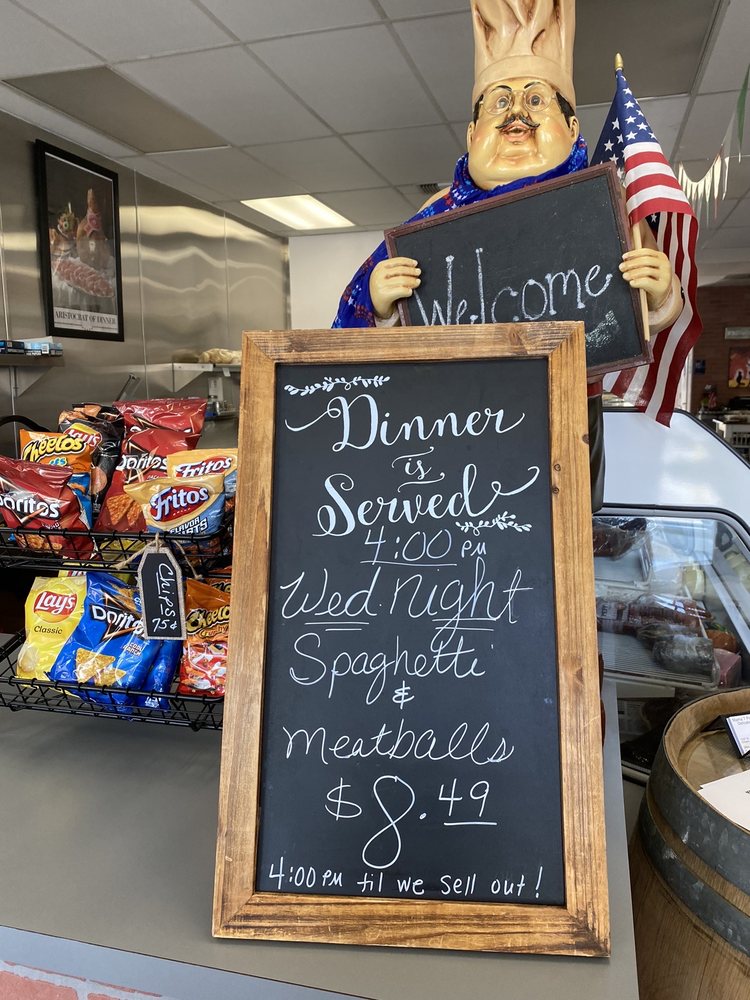 ARISTOCRAT OF DINNER
Welcome
Dinner
is
Served
4:00 PM
Wed. Night
Spaghetti
&
Meatballs
$8.49
4:00 PM til we sell out!
Cheetos
Doritos
Doritos
Lay's
Fritos
Fritos
FLAVOR
Chips
75¢
Lay's
Classic
Doritos
Cheetos